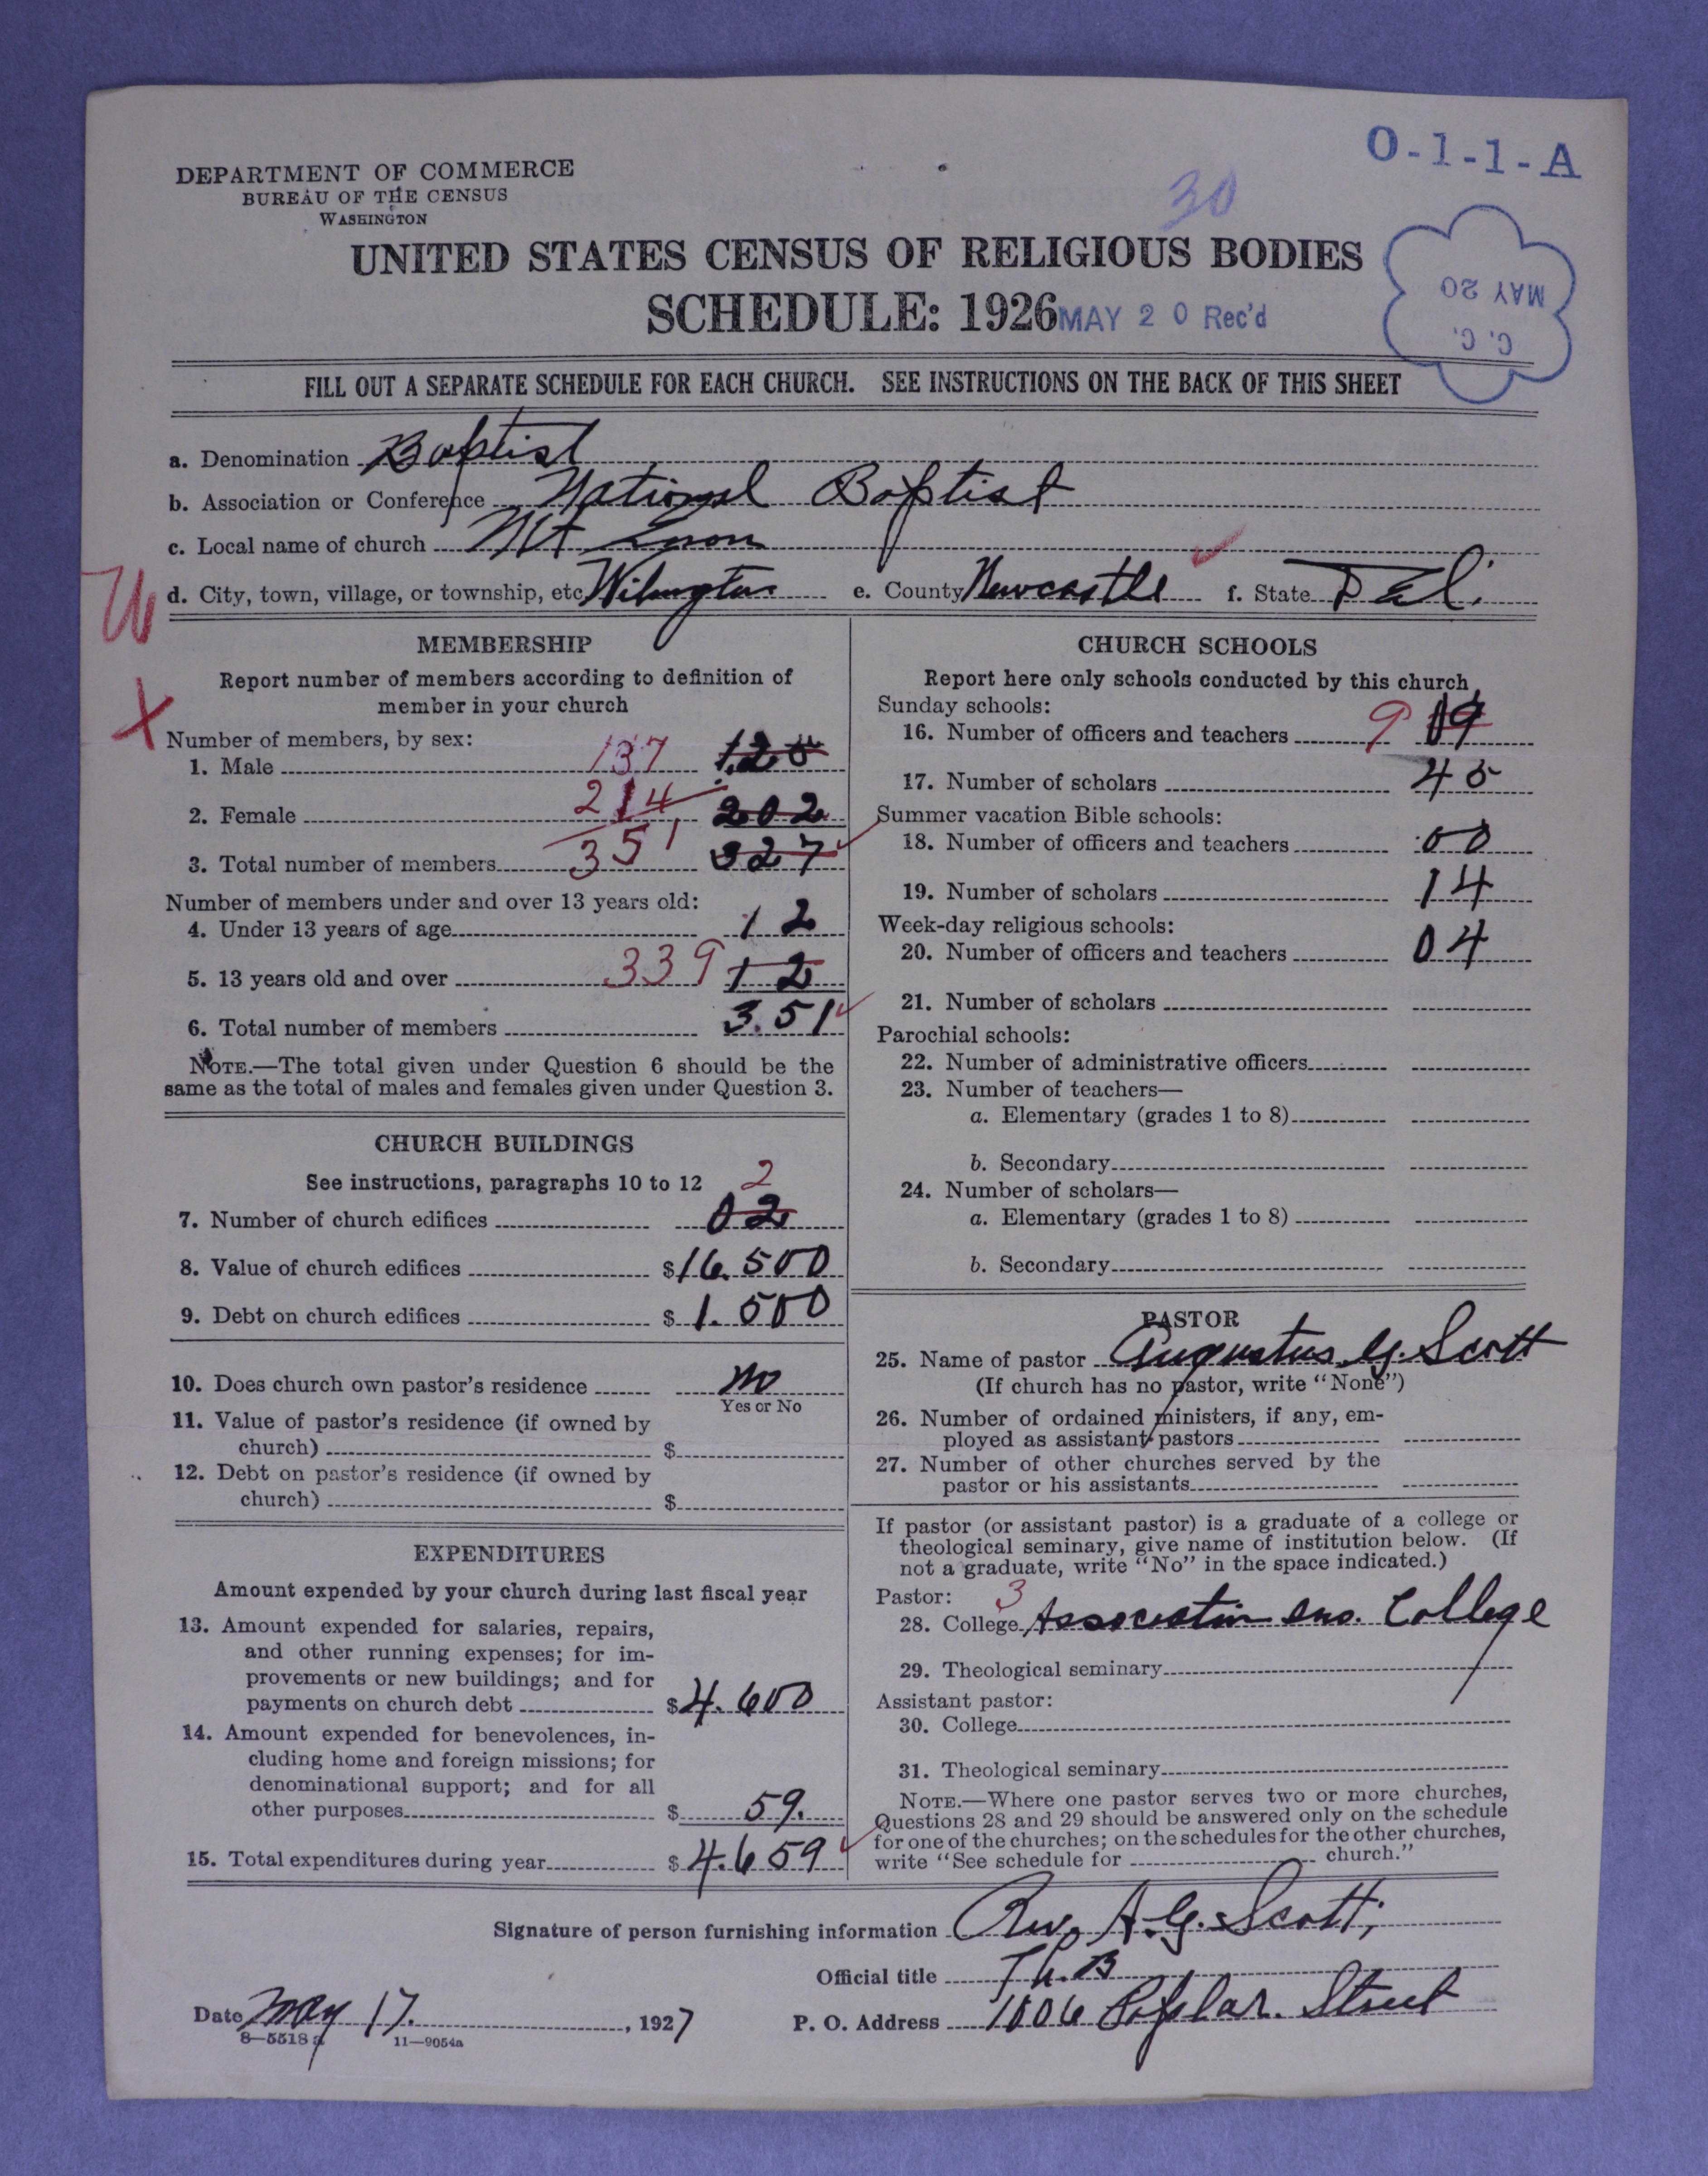 O-1-1-A
DEPARTMENT OF COMMERCE
BUREAU OF THE CENSUS
WASHINGTON
30
UNITED STATES CENSUS OF RELIGIOUS BODIES
SCHEDULE: 1926
MAY 20 Rec'd
C. C.
MAY 20
FILL OUT A SEPARATE SCHEDULE FOR EACH CHURCH. SEE INSTRUCTIONS ON THE BACK OF THIS SHEET
a. Denomination Baptist
b. Association or Conference National Baptist
c. Local name of church Mt
d. City, town, village, or township, etc Wilmington e. County Newcastle f. State Del.
MEMBERSHIP
Report number of members according to definition of
member in your church
X
Number of members, by sex:
1. Male 137 125
2. Female 214 202
3. Total number of members 351 327
Number of members under and over 13 years old:
4. Under 13 years of age 12
5. 13 years old and over 339 12
6. Total number of members 3.51
NOTE.—The total given under Question 6 should be the
same as the total of males and females given under Question 3.
CHURCH BUILDINGS
See instructions, paragraphs 10 to 12
7. Number of church edifices 2 02
8. Value of church edifices $16.500
9. Debt on church edifices $1.500
10. Does church own pastor's residence no
Yes or No
11. Value of pastor's residence (if owned by
church) $
12. Debt on pastor's residence (if owned by
church) $
EXPENDITURES
Amount expended by your church during last fiscal year
13. Amount expended for salaries, repairs,
and other running expenses; for im-
provements or new buildings; and for
payments on church debt $4.600
14. Amount expended for benevolences, in-
cluding home and foreign missions; for
denominational support; and for all
other purposes $59.
15. Total expenditures during year $4.659
CHURCH SCHOOLS
Report here only schools conducted by this church
Sunday schools:
16. Number of officers and teachers 9 09
17. Number of scholars 45
Summer vacation Bible schools:
18. Number of officers and teachers 00
19. Number of scholars 14
Week-day religious schools:
20. Number of officers and teachers 04
21. Number of scholars
Parochial schools:
22. Number of administrative officers
23. Number of teachers—
a. Elementary (grades 1 to 8)
b. Secondary
24. Number of scholars—
a. Elementary (grades 1 to 8)
b. Secondary
PASTOR
25. Name of pastor Augustus G. Scott
(If church has no pastor, write "None")
26. Number of ordained ministers, if any, em-
ployed as assistant pastors
27. Number of other churches served by the
pastor or his assistants
If pastor (or assistant pastor) is a graduate of a college or
theological seminary, give name of institution below. (If
not a graduate, write "No" in the space indicated.)
Pastor: 3
28. College College
29. Theological seminary
Assistant pastor:
30. College
31. Theological seminary
NOTE.—Where one pastor serves two or more churches,
Questions 28 and 29 should be answered only on the schedule
for one of the churches; on the schedules for the other churches,
write "See schedule for church."
Signature of person furnishing information Rev. A. G. Scott,
Official title Th.B
Date May 17. , 1927 P. O. Address 1006 Poplar. Street
8—5518 a 11—9054a